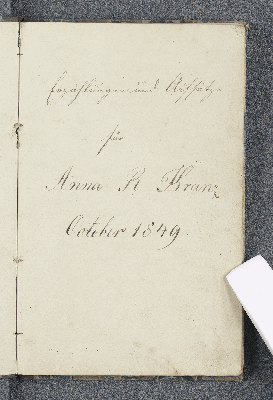 Erzählungen und Aufsätze
für
Anna R Kranz
October 1849.